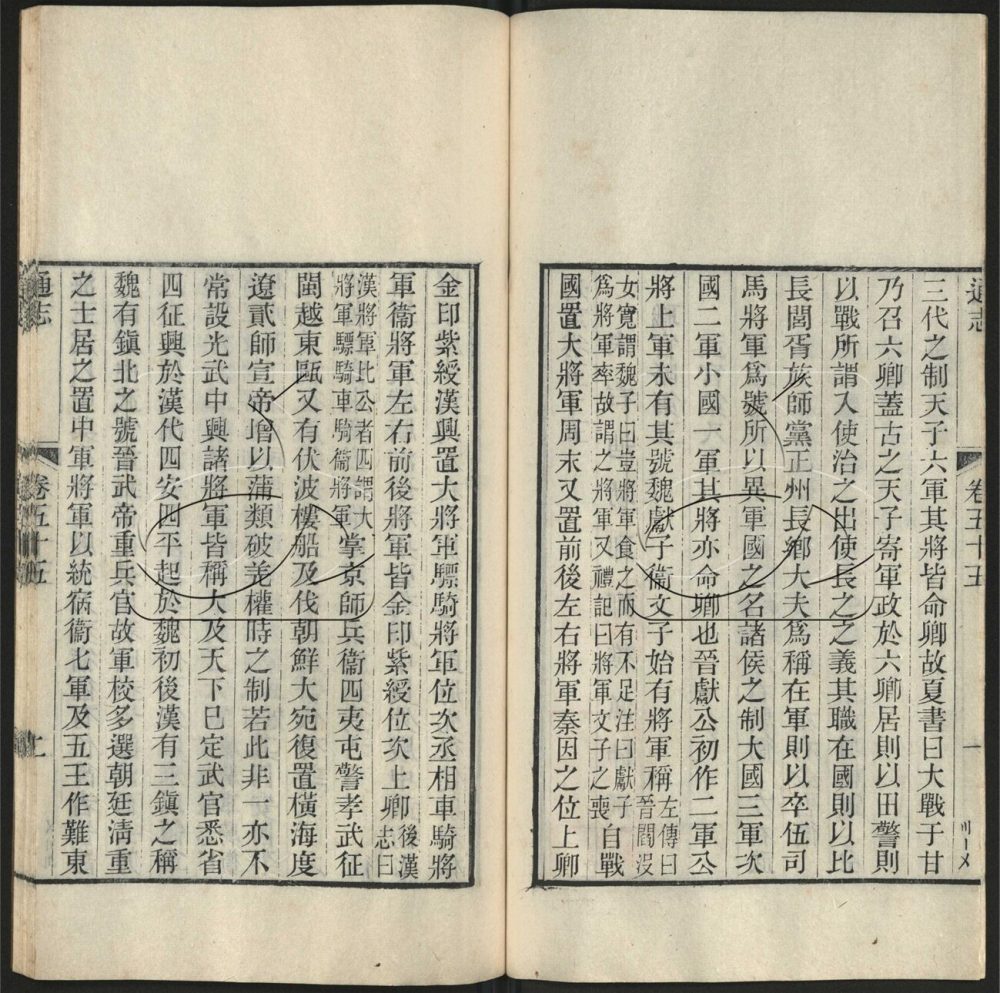 通志
卷五十五
一
三代之制天子六軍其將皆命卿故夏書曰大戰于甘
乃召六卿蓋古之天子寄軍政於六卿居則以田警則
以戰所謂入使治之出使長之之義其職在國則以比
長閭胥族師黨正州長鄉大夫爲稱在軍則以卒伍司
馬將軍爲號所以異軍國之名諸侯之制大國三軍次
國二軍小國一軍其將亦命卿也晉獻公初作二軍公
將上軍未有其號魏獻子衞文子始有將軍稱左傳曰晉閻没
女寬謂魏子曰豈將軍食之而有不足注曰獻子爲將軍率故謂之將軍又禮記曰將軍文子之喪自戰
國置大將軍周末又置前後左右將軍秦因之位上卿
金印紫綬漢興置大將軍驃騎將軍位次丞相車騎將
軍衞將軍左右前後將軍皆金印紫綬位次上卿後漢志曰
漢將軍比公者四謂大將軍驃騎車騎衞將軍掌京師兵衞四夷屯警孝武征
閩越東甌又有伏波樓船及伐朝鮮大宛復置橫海度
遼貳師宣帝增以蒲類破羌權時之制若此非一亦不
常設光武中興諸將軍皆稱大及天下已定武官悉省
四征興於漢代四安四平起於魏初後漢有三鎭之稱
魏有鎭北之號晉武帝重兵官故軍校多選朝廷淸重
之士居之置中軍將軍以統宿衞七軍及五王作難東
通志
卷五十五